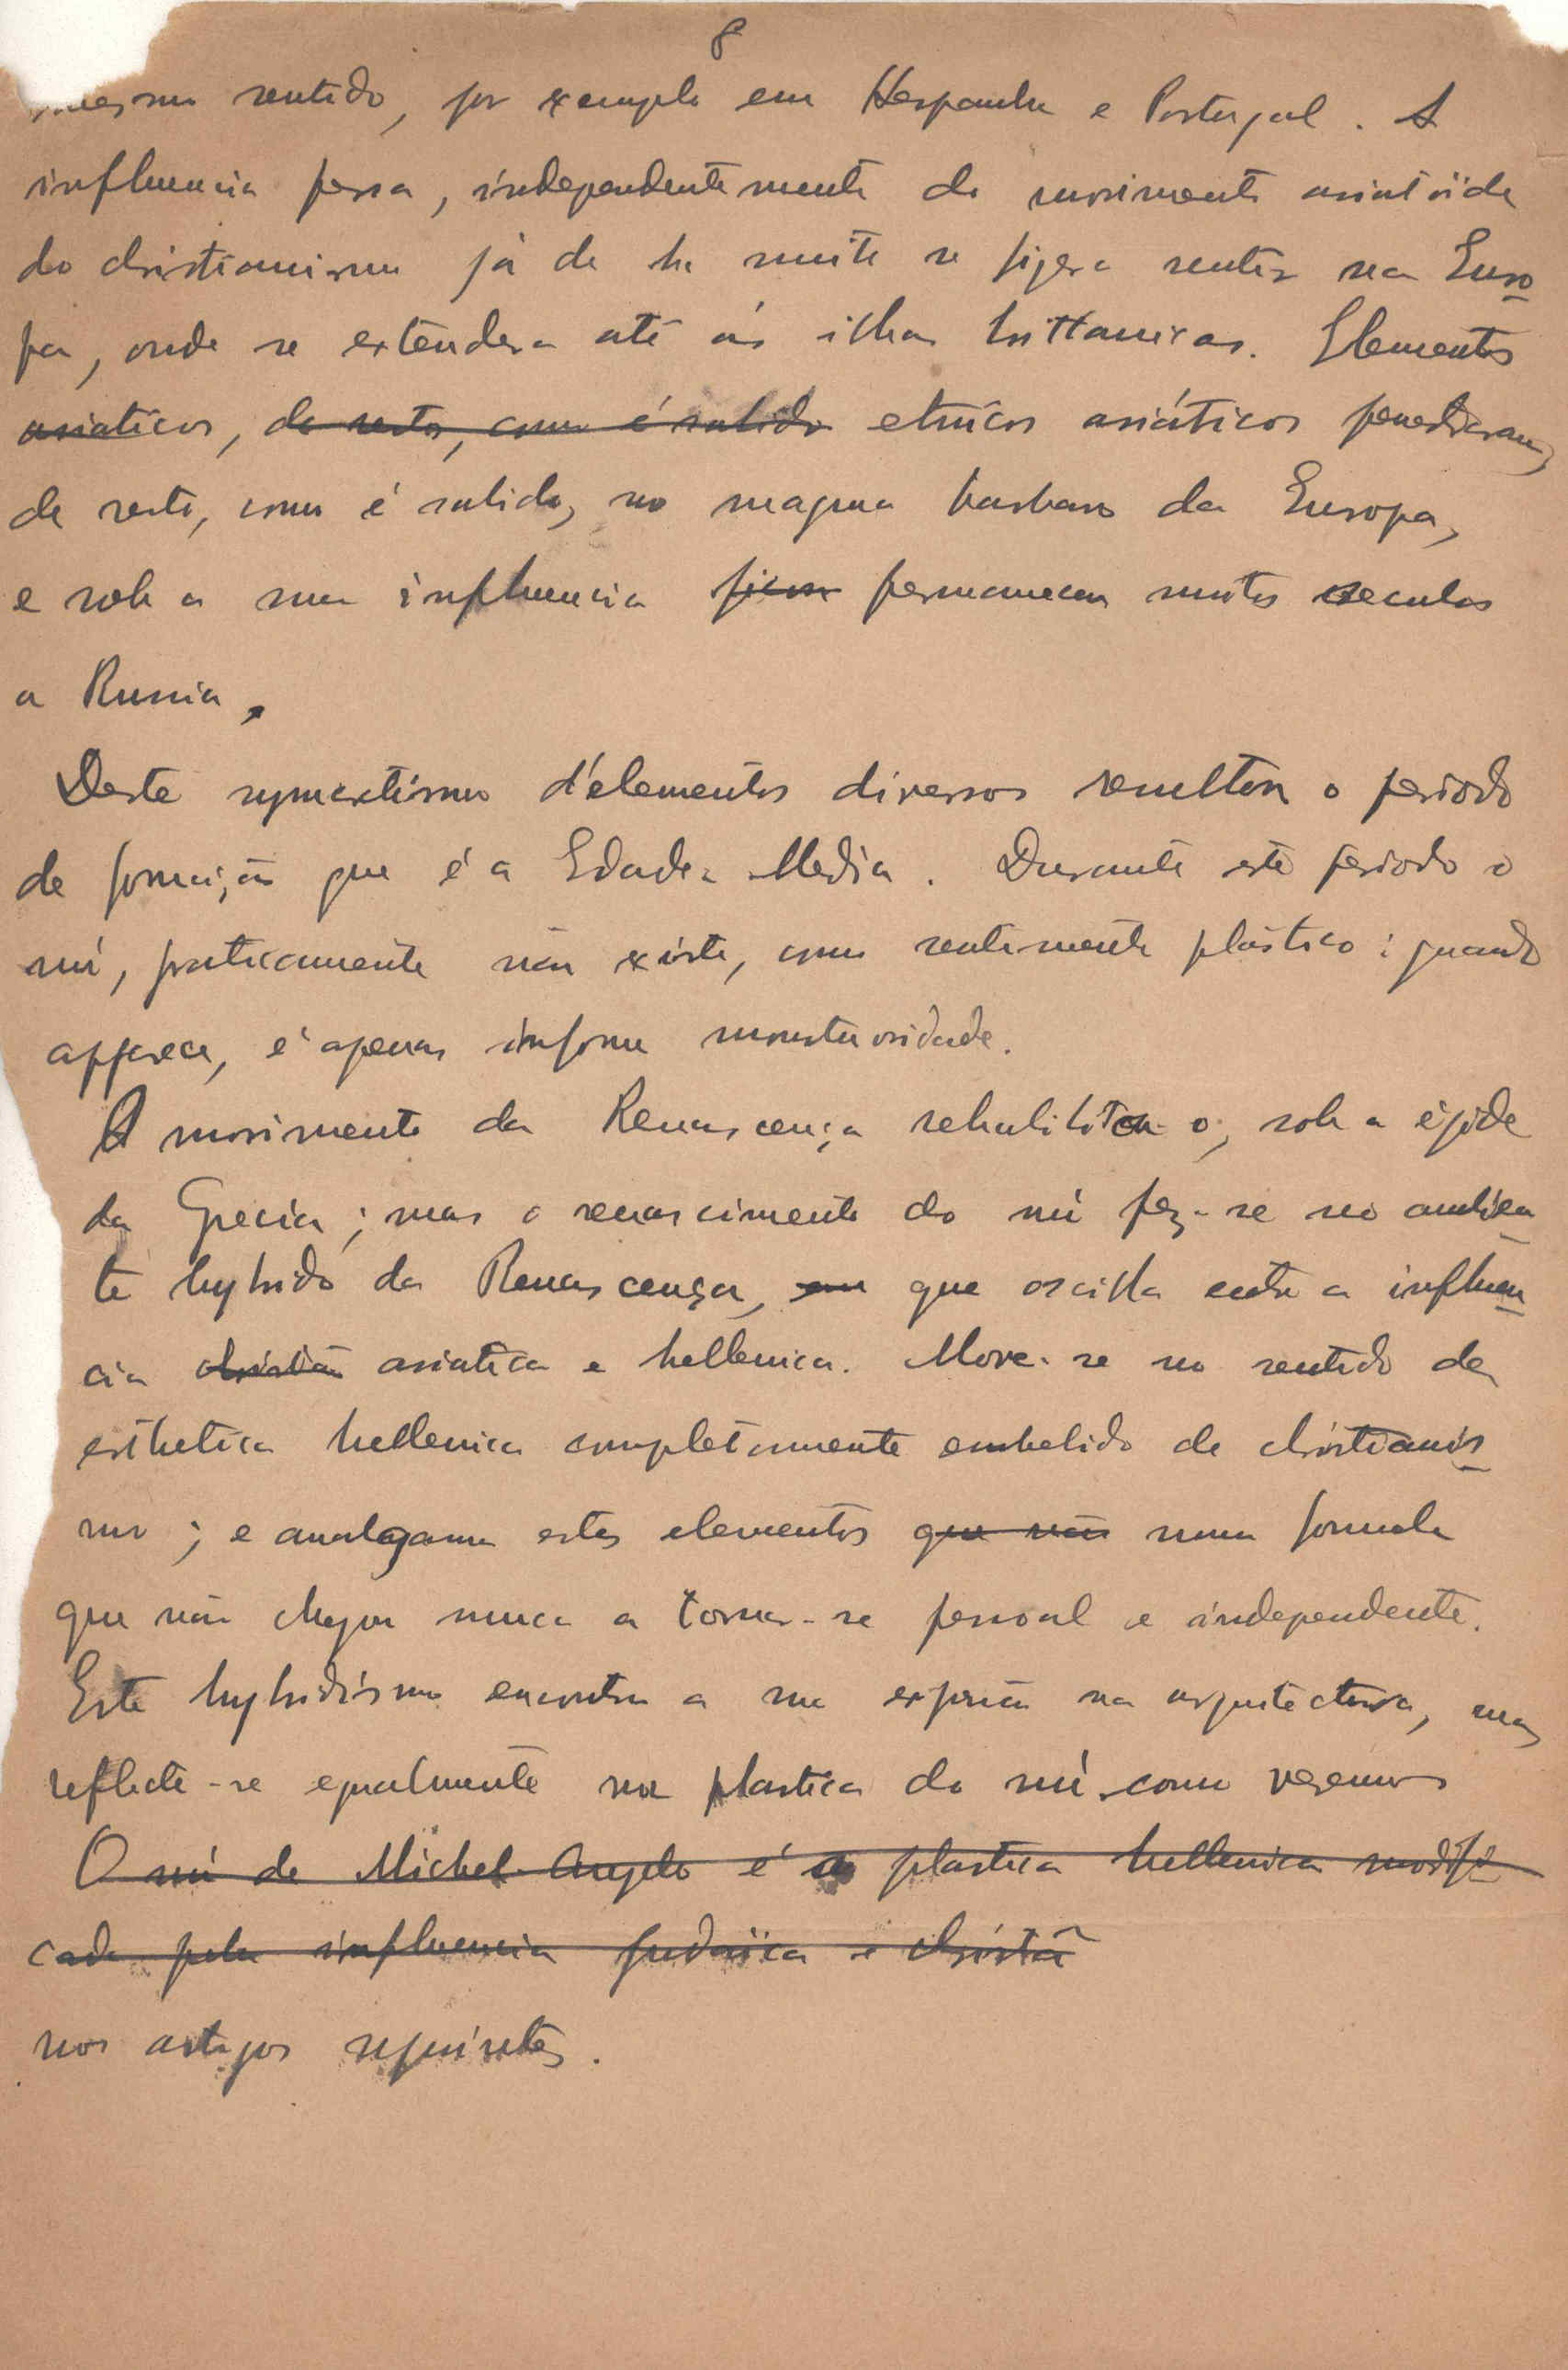 8
mesmo sentido, por exemplo em Hespanha e Portugal. A
influencia persa, independentemente do movimento asiatoide
do christianismo já de ha muito se fizera sentir na Euro
pa, onde se extendera até ás ilhas brittanicas. Elementos
asiaticos, de resto, como é sabido etnicos asiáticos penetraram,
de resto, como é sabido, no magma barbaro da Europa,
e sob a sua influencia ficou permaneceu muitos seculos
a Russia.
Deste syncretismo d'elementos diversos resultou o periodo
de formação que é a Edade-Media. Durante este periodo o
nú, praticamente não existe, como sentimento plástico: quando
apparece, é apenas informe monstruosidade.
O movimento da Renascença rehabilitou-o, sob a égide
da Grecia; mas o renascimento do nú fez-se no ambien
te hybrido da Renascença, em que oscilla entre a influen
cia christã asiatica e hellenica. Move-se no sentido da
esthetica hellenica completamente embebido de christianis
mo; e amalgama estes elementos que não numa formula
que não chegou nunca a tornar-se pessoal e independente.
Este hybridismo encontra a sua expressão na arquitectura, mas
reflecte-se egualmente na plastica do nú como veremos
O nú de Michel-Angelo é a plastica hellenica modifi
cada pela influencia judaica e christã
nos artigos seguintes.